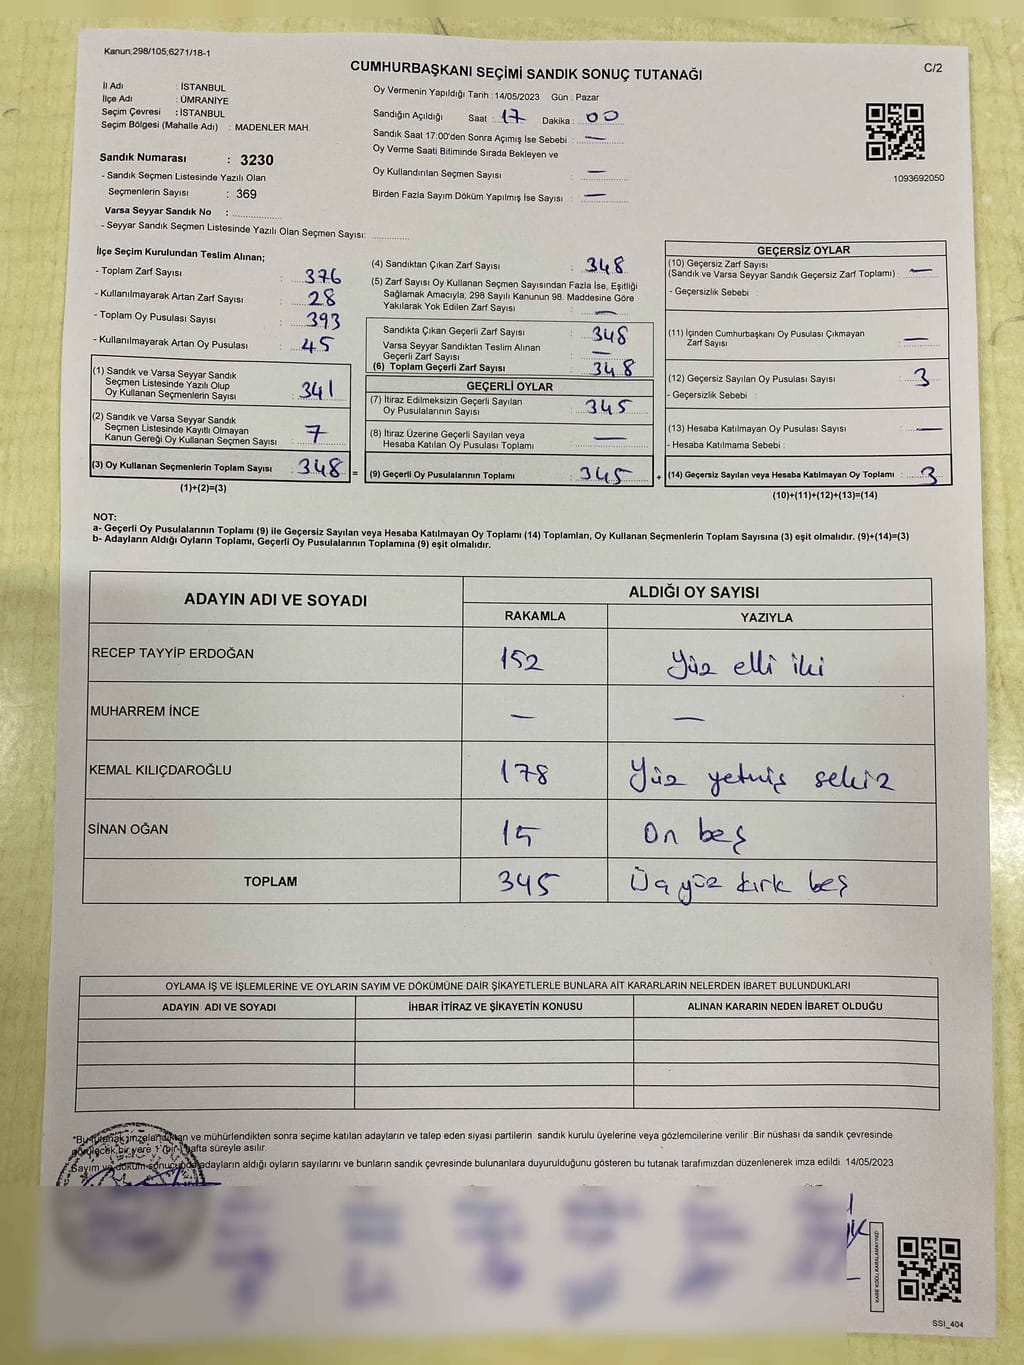 Kanun;298/105;6271/18-1
CUMHURBAŞKANI SEÇİMİ SANDIK SONUÇ TUTANAĞI
C/2
İl Adı : İSTANBUL
İlçe Adı : ÜMRANİYE
Seçim Çevresi : İSTANBUL
Seçim Bölgesi (Mahalle Adı) : MADENLER MAH.
Sandık Numarası : 3230
- Sandık Seçmen Listesinde Yazılı Olan
Seçmenlerin Sayısı : 369
Varsa Seyyar Sandık No :
- Seyyar Sandık Seçmen Listesinde Yazılı Olan Seçmen Sayısı:
Oy Vermenin Yapıldığı Tarih :14/05/2023 Gün : Pazar
Sandığın Açıldığı Saat : 17 Dakika : 00
Sandık Saat 17:00'den Sonra Açımış İse Sebebi : —
Oy Verme Saati Bitiminde Sırada Bekleyen ve
Oy Kullandırılan Seçmen Sayısı : —
Birden Fazla Sayım Döküm Yapılmış İse Sayısı : —
1093692050
İlçe Seçim Kurulundan Teslim Alınan;
- Toplam Zarf Sayısı : 376
- Kullanılmayarak Artan Zarf Sayısı : 28
- Toplam Oy Pusulası Sayısı : 393
- Kullanılmayarak Artan Oy Pusulası : 45
(1) Sandık ve Varsa Seyyar Sandık
Seçmen Listesinde Yazılı Olup
Oy Kullanan Seçmenlerin Sayısı : 341
(2) Sandık ve Varsa Seyyar Sandık
Seçmen Listesinde Kayıtlı Olmayan
Kanun Gereği Oy Kullanan Seçmen Sayısı : 7
(3) Oy Kullanan Seçmenlerin Toplam Sayısı : 348 =
(1)+(2)=(3)
(4) Sandıktan Çıkan Zarf Sayısı : 348
(5) Zarf Sayısı Oy Kullanan Seçmen Sayısından Fazla İse, Eşitliği
Sağlamak Amacıyla, 298 Sayılı Kanunun 98. Maddesine Göre
Yakılarak Yok Edilen Zarf Sayısı : —
Sandıkta Çıkan Geçerli Zarf Sayısı : 348
Varsa Seyyar Sandıktan Teslim Alınan
Geçerli Zarf Sayısı : —
(6) Toplam Geçerli Zarf Sayısı : 348
GEÇERLİ OYLAR
(7) İtiraz Edilmeksizin Geçerli Sayılan
Oy Pusulalarının Sayısı : 345
(8) İtiraz Üzerine Geçerli Sayılan veya
Hesaba Katılan Oy Pusulası Toplamı : —
(9) Geçerli Oy Pusulalarının Toplamı : 345 +
GEÇERSİZ OYLAR
(10) Geçersiz Zarf Sayısı
(Sandık ve Varsa Seyyar Sandık Geçersiz Zarf Toplamı) : —
- Geçersizlik Sebebi :
(11) İçinden Cumhurbaşkanı Oy Pusulası Çıkmayan
Zarf Sayısı : —
(12) Geçersiz Sayılan Oy Pusulası Sayısı : 3
- Geçersizlik Sebebi :
(13) Hesaba Katılmayan Oy Pusulası Sayısı : —
- Hesaba Katılmama Sebebi :
(14) Geçersiz Sayılan veya Hesaba Katılmayan Oy Toplamı : 3
(10)+(11)+(12)+(13)=(14)
NOT:
a- Geçerli Oy Pusulalarının Toplamı (9) ile Geçersiz Sayılan veya Hesaba Katılmayan Oy Toplamı (14) Toplamları, Oy Kullanan Seçmenlerin Toplam Sayısına (3) eşit olmalıdır. (9)+(14)=(3)
b- Adayların Aldığı Oyların Toplamı, Geçerli Oy Pusulalarının Toplamına (9) eşit olmalıdır.
ADAYIN ADI VE SOYADI
ALDIĞI OY SAYISI
RAKAMLA YAZIYLA
RECEP TAYYİP ERDOĞAN 152 Yüz elli iki
MUHARREM İNCE — —
KEMAL KILIÇDAROĞLU 178 Yüz yetmiş sekiz
SİNAN OĞAN 15 On beş
TOPLAM 345 Üç yüz kırk beş
OYLAMA İŞ VE İŞLEMLERİNE VE OYLARIN SAYIM VE DÖKÜMÜNE DAİR ŞİKAYETLERLE BUNLARA AİT KARARLARIN NELERDEN İBARET BULUNDUKLARI
ADAYIN ADI VE SOYADI İHBAR İTİRAZ VE ŞİKAYETİN KONUSU ALINAN KARARIN NEDEN İBARET OLDUĞU
*Bu tutanak imzalandıktan ve mühürlendikten sonra seçime katılan adayların ve talep eden siyasi partilerin sandık kurulu üyelerine veya gözlemcilerine verilir. Bir nüshası da sandık çevresinde
görülecek bir yere 1 (bir) hafta süreyle asılır.
Sayım ve döküm sonucunda adayların aldığı oyların sayılarını ve bunların sandık çevresinde bulunanlara duyurulduğunu gösteren bu tutanak tarafımızdan düzenlenerek imza edildi. 14/05/2023
KARE KODU KARALAMAYINIZ!
SSI_404